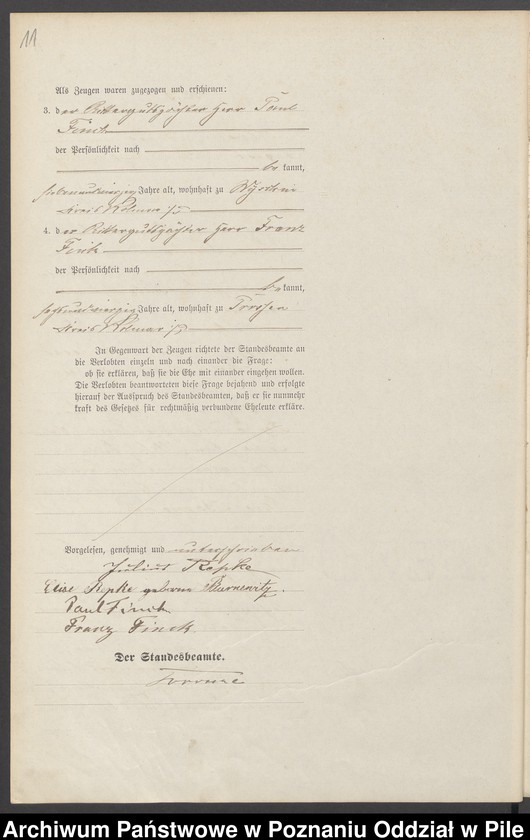 11
Als Zeugen waren zugezogen und erschienen:
3. der Rittergutspächter Herr Paul
Finck
der Persönlichkeit nach
be kannt,
siebenundvierzig Jahre alt, wohnhaft zu
Kreis Kolmar i/P
4. der Rittergutspächter Herr Franz
Finck
der Persönlichkeit nach
be kannt,
sechsundvierzig Jahre alt, wohnhaft zu
Kreis Kolmar i/P
In Gegenwart der Zeugen richtete der Standesbeamte an
die Verlobten einzeln und nach einander die Frage:
ob sie erklären, daß sie die Ehe mit einander eingehen wollen.
Die Verlobten beantworteten diese Frage bejahend und erfolgte
hierauf der Ausspruch des Standesbeamten, daß er sie nunmehr
kraft des Gesetzes für rechtmäßig verbundene Eheleute erkläre.
Vorgelesen, genehmigt und unterschrieben
Julius Repke
Elise Repke geborene
Paul Finck
Franz Finck.
Der Standesbeamte.
Archiwum Państwowe w Poznaniu Oddział w Pile